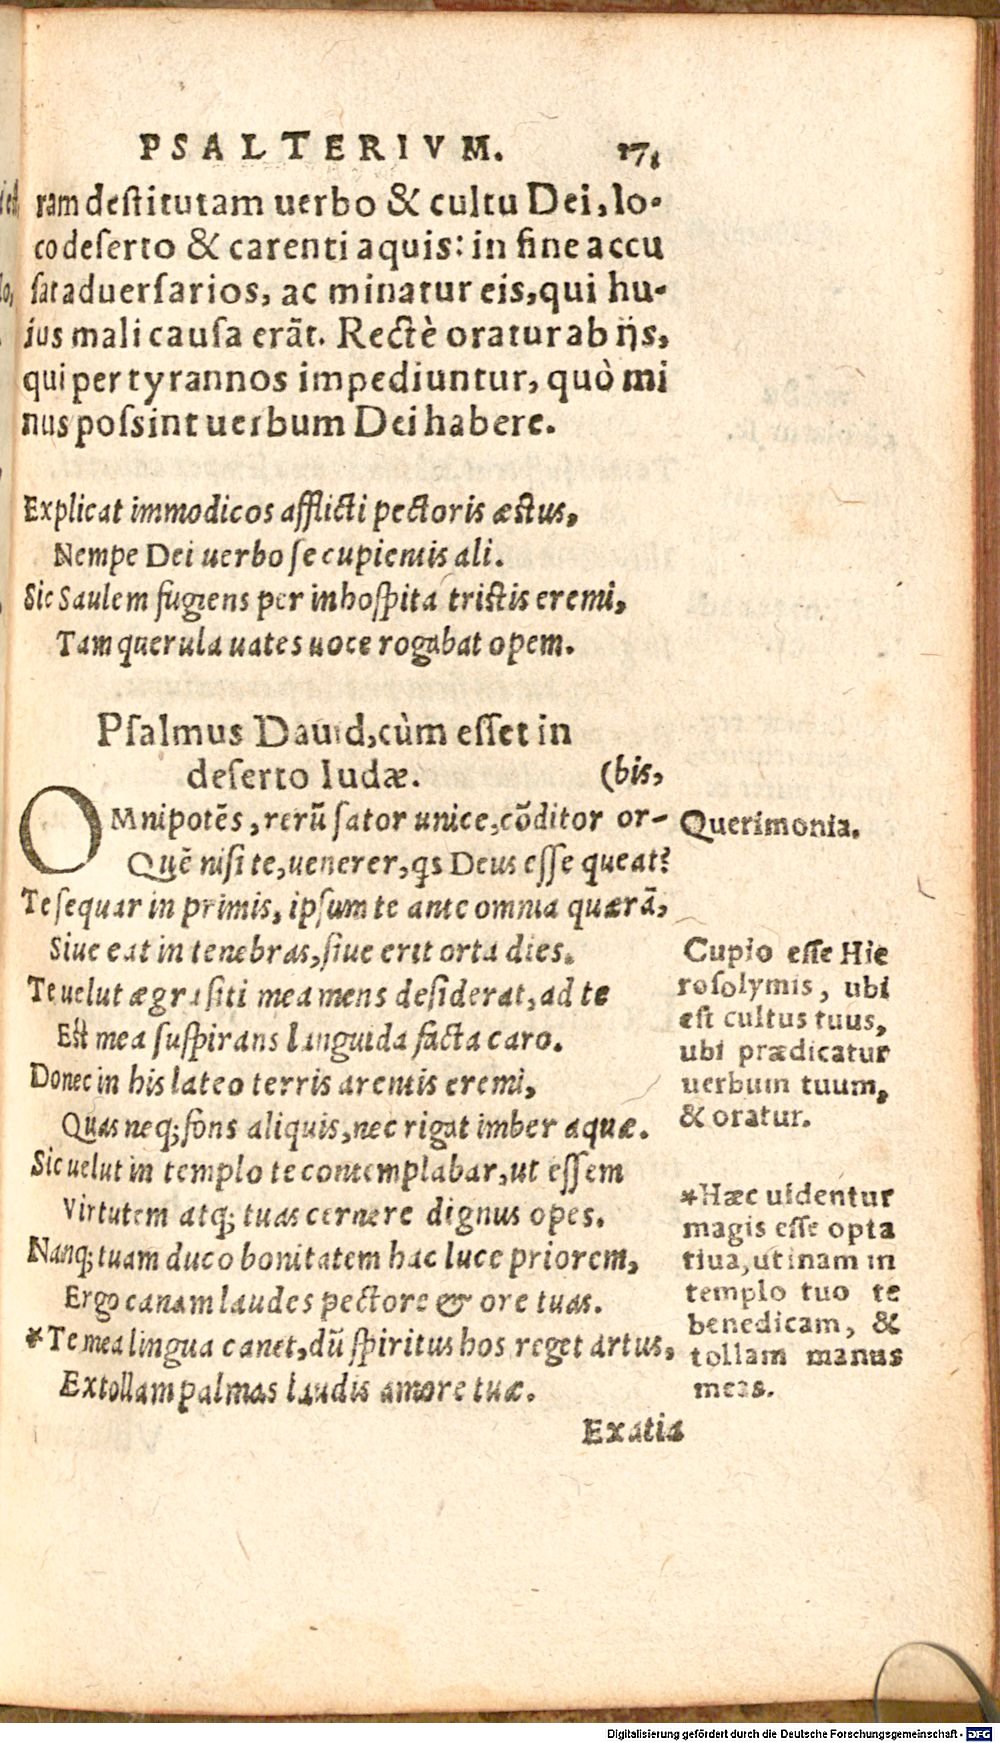 PSALTERIVM. 171
ram destitutam uerbo & cultu Dei, lo-
co deserto & carenti aquis: in fine accu
sat aduersarios, ac minatur eis, qui hu-
ius mali causa erãt. Rectè oratur ab ijs,
qui per tyrannos impediuntur, quò mi
nus possint uerbum Dei habere.
Explicat immodicos afflicti pectoris æstus,
Nempe Dei uerbo se cupientis ali.
Sic Saulem fugiens per inhospita tristis eremi,
Tam querula uates uoce rogabat opem.
Psalmus Dauid, cùm esset in
deserto Iudæ. (bis,
OMnipotẽs, rerũ sator unice, cõditor or-
Quẽ nisi te, uenerer, qs Deus esse queat?
Te sequar in primis, ipsum te ante omnia quærã,
Siue eat in tenebras, siue erit orta dies.
Te uelut ægra siti mea mens desiderat, ad te
Est mea suspirans languida facta caro.
Donec in his lateo terris arentis eremi,
Quas neq; fons aliquis, nec rigat imber aquæ.
Sic uelut in templo te contemplabar, ut essem
Virtutem atq; tuas cernere dignus opes.
Nanq; tuam duco bonitatem hac luce priorem,
Ergo canam laudes pectore & ore tuas.
*Te mea lingua canet, dũ spiritus hos reget artus,
Extollam palmas laudis amore tuæ.
Exatia
Querimonia.
Cupio esse Hie
rosolymis, ubi
est cultus tuus,
ubi prædicatur
uerbum tuum,
& oratur.
*Hæc uidentur
magis esse opta
tiua, utinam in
templo tuo te
benedicam, &
tollam manus
meas.
Digitalisierung gefördert durch die Deutsche Forschungsgemeinschaft - DFG